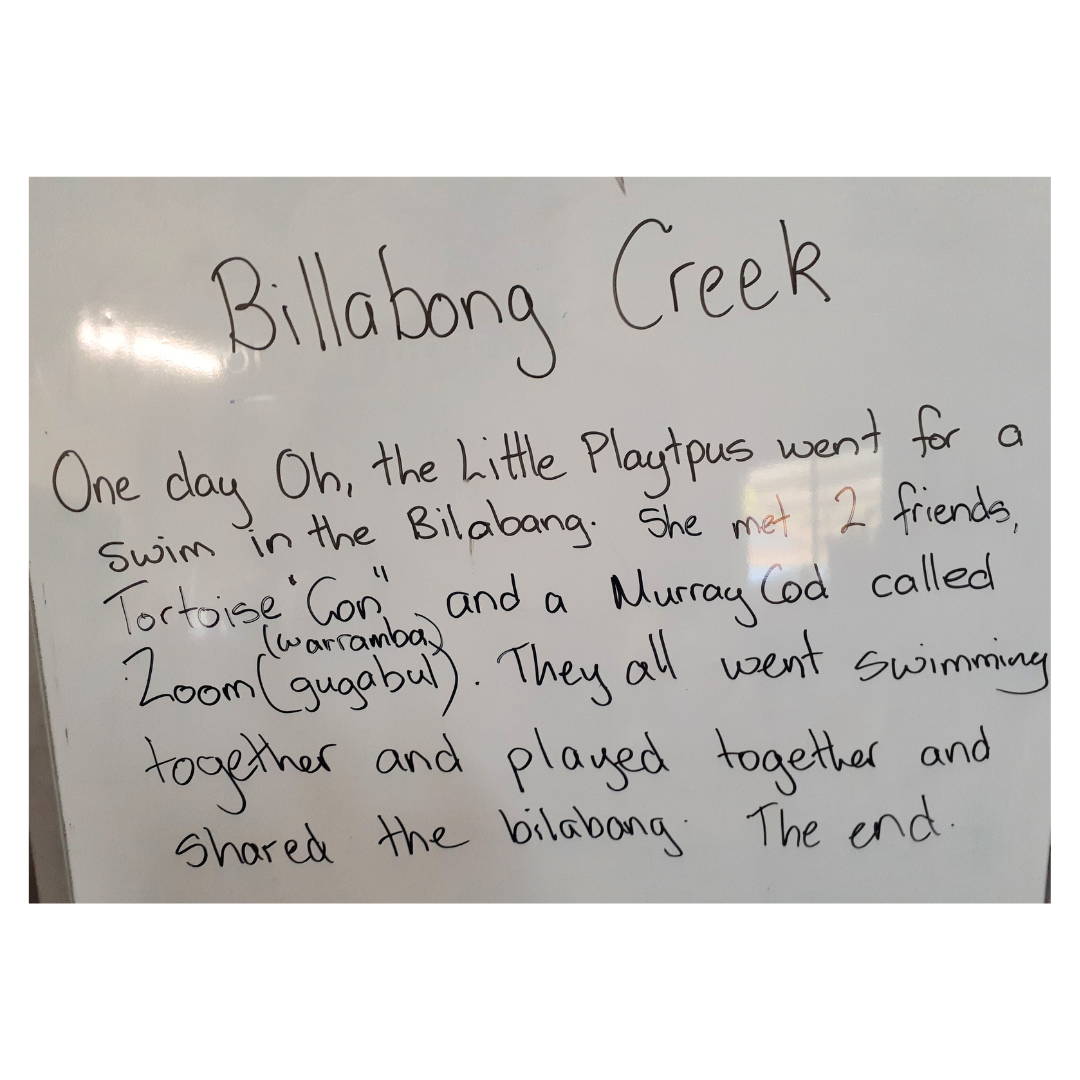 Billabong Creek
One day Oh, the Little Playtpus went for a
swim in the Bilabang. She met 2 friends,
Tortoise "Con", and a Murray Cod called
(warramba)
Zoom (gugabul). They all went swimming
together and played together and
shared the bilabang. The end.